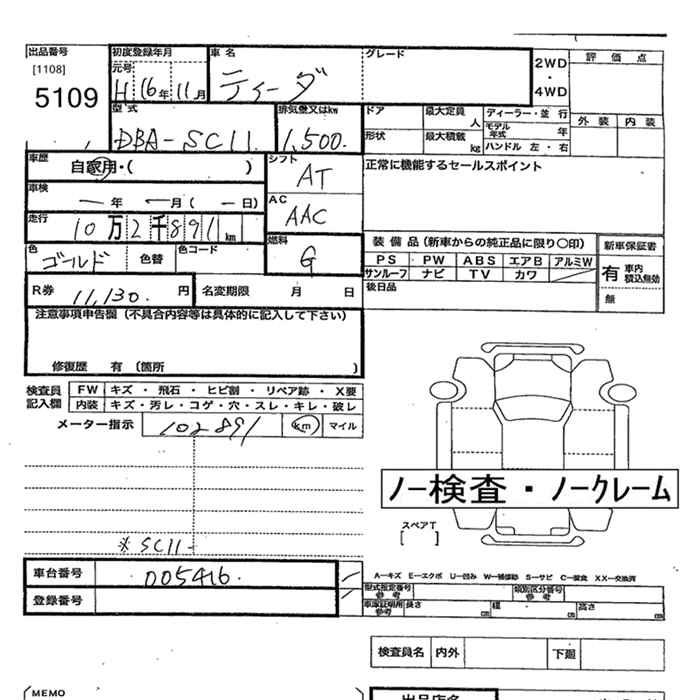 出品番号 初度登録年月 車名 グレード 2WD・4WD 評価点
[1108] 元号
5109 H 16年 11月 ティーダ
型式 排気量又はkw ドア 最大定員 人 ディーラー・並行 外装 内装
DBA-SC11. 1,500. 形状 最大積載 kg モデル年式 年
ハンドル 左・右
車歴 自家用・( ) シフト AT 正常に機能するセールスポイント
車検 ー年 ー月 (ー日) AC AAC
走行 10万2千891km 燃料 G 装備品 (新車からの純正品に限り〇印) 新車保証書
色 ゴールド 色替 色コード PS PW ABS エアB アルミW 有 車内積込無効
サンルーフ ナビ TV カワ
R券 11,130. 円 名変期限 月 日 後日品 無
注意事項申告欄 (不具合内容等は具体的に記入して下さい)
修復歴 有 (箇所 )
検査員記入欄 FW キズ・飛石・ヒビ割・リペア跡・X要
内装 キズ・汚レ・コゲ・穴・スレ・キレ・破レ
メーター指示 102891 km マイル
ノー検査・ノークレーム
スペアT
[ ]
*SC11-
車台番号 005416.
登録番号
A-キズ E-エクボ U-凹み W-補修跡 S-サビ C-腐食 XX-交換済
型式指定番号 参考 類別区分番号 参考
車庫証明用 参考 長さ cm 幅 cm 高さ cm
検査員名 内外 下廻
(MEMO 出品店名